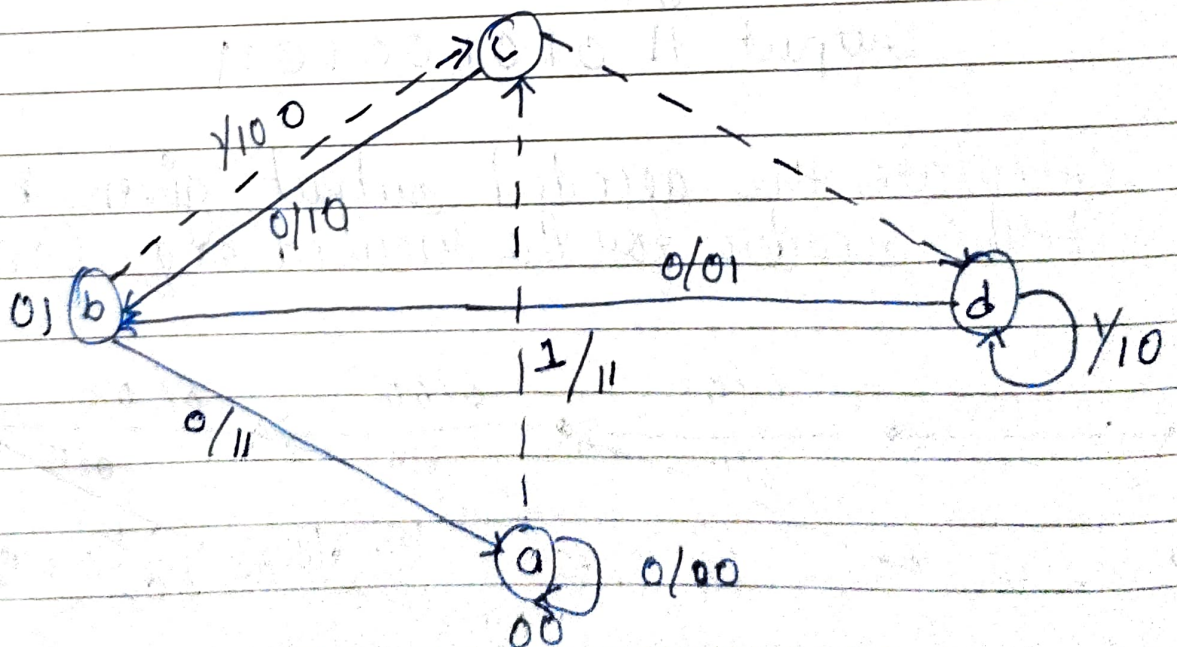 c
1/10 0
0/10
0/01
01 b
d
1/10
1/11
0/11
a
0/00
00